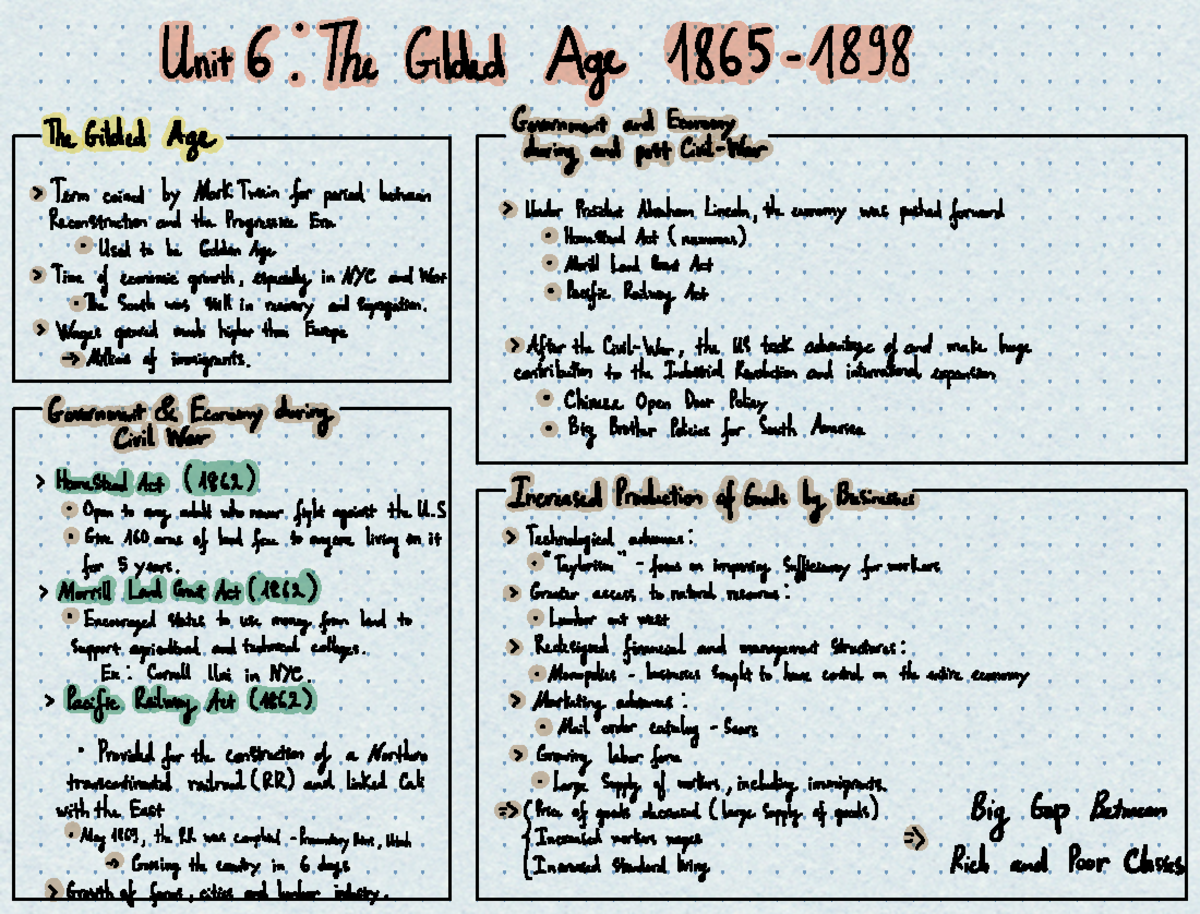 Unit 6: The Gilded Age 1865-1898
The Gilded Age
> Term coined by Mark Twain for period between
Reconstruction and the Progressive Era
• Used to be Golden Age
> Time of economic growth, especially in NYC and West
• The South was still in recovery and segregation.
> Wages general much higher than Europe
→ Millions of immigrants.
Government & Economy during
Civil War
> Homestead Act (1862)
• Open to any adult who never fight against the U.S
• Give 160 acres of land free to anyone living on it
for 5 years.
> Morrill Land Grant Act (1862)
• Encouraged states to use money from land to
support agricultural and technical colleges.
Ex: Cornell Uni in NYC.
> Pacific Railway Act (1862)
• Provided for the construction of a Northern
transcontinental railroad (RR) and linked Cali
with the East
• May 1869, the RR was completed - Promontory Point, Utah
→ Crossing the country in 6 days
> Growth of farms, cities and lumber industry.
Government and Economy
during and post Civil-War
> Under President Abraham Lincoln, the economy was pushed forward
• Homestead Act (numerous)
• Morill Land Grant Act
• Pacific Railway Act
> After the Civil-War, the US took advantage of and make huge
contribution to the Industrial Revolution and international expansion
• Chinese Open Door Policy
• Big Brother Policies for South America
Increased Production of Goods by Businesses
> Technological advances:
• "Taylorism" - focus on improving sufficiency for workers
> Greater access to natural resources:
• Lumber out west
> Redesigned financial and management structures:
• Monopolies - businesses sought to have control on the entire economy
> Marketing advances:
• Mail order catalog - Sears
> Growing labor force
• Large supply of workers, including immigrants.
=> { Price of goods decreased (large supply of goods)
Increased workers wages
Increased standard living
=> Big Gap Between
Rich and Poor Classes